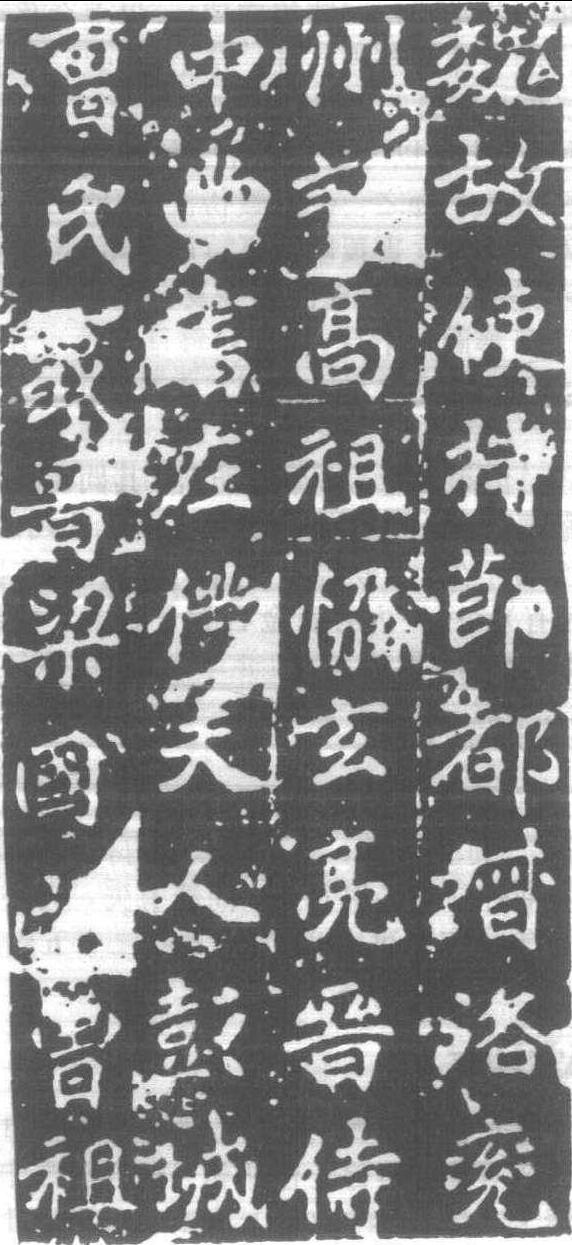 魏故使持莭都督洛兗
州高祖協玄亮晉侍
中尚書左僕夫人彭城
曹氏晉梁國曾祖